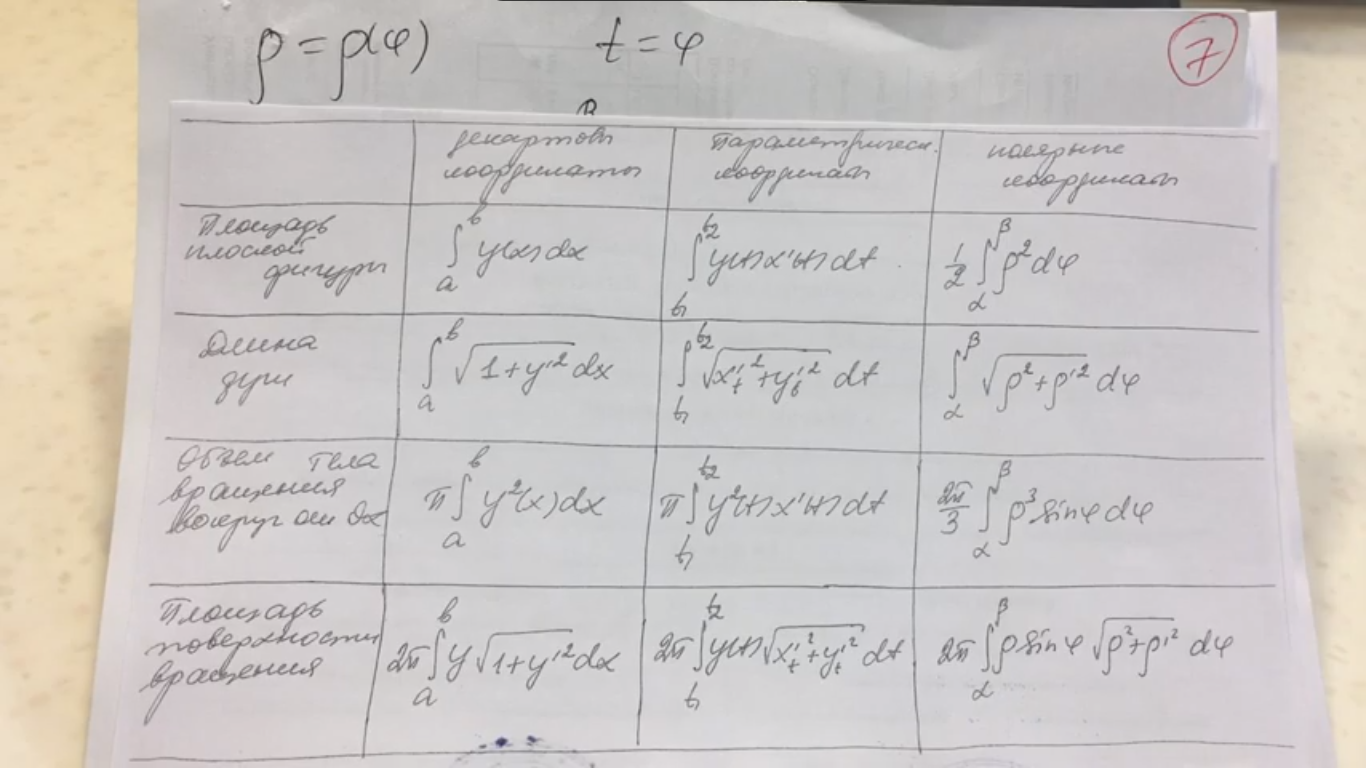 ρ = ρ(φ) t = φ
7
декартовы координаты
параметрическ. координаты
полярные координаты
Площадь плоской фигуры
∫ₐᵇ y(x) dx
∫_{t₁}^{t₂} y(t) x'(t) dt
1/2 ∫_α^β ρ² dφ
Длина дуги
∫ₐᵇ √(1 + y'²) dx
∫_{t₁}^{t₂} √(x'ₜ² + y'ₜ²) dt
∫_α^β √(ρ² + ρ'²) dφ
Объем тела вращения вокруг оси Ox
π ∫ₐᵇ y²(x) dx
π ∫_{t₁}^{t₂} y²(t) x'(t) dt
2π/3 ∫_α^β ρ³ sinφ dφ
Площадь поверхности вращения
2π ∫ₐᵇ y √(1 + y'²) dx
2π ∫_{t₁}^{t₂} y(t) √(x'ₜ² + y'ₜ²) dt
2π ∫_α^β ρ sinφ √(ρ² + ρ'²) dφ